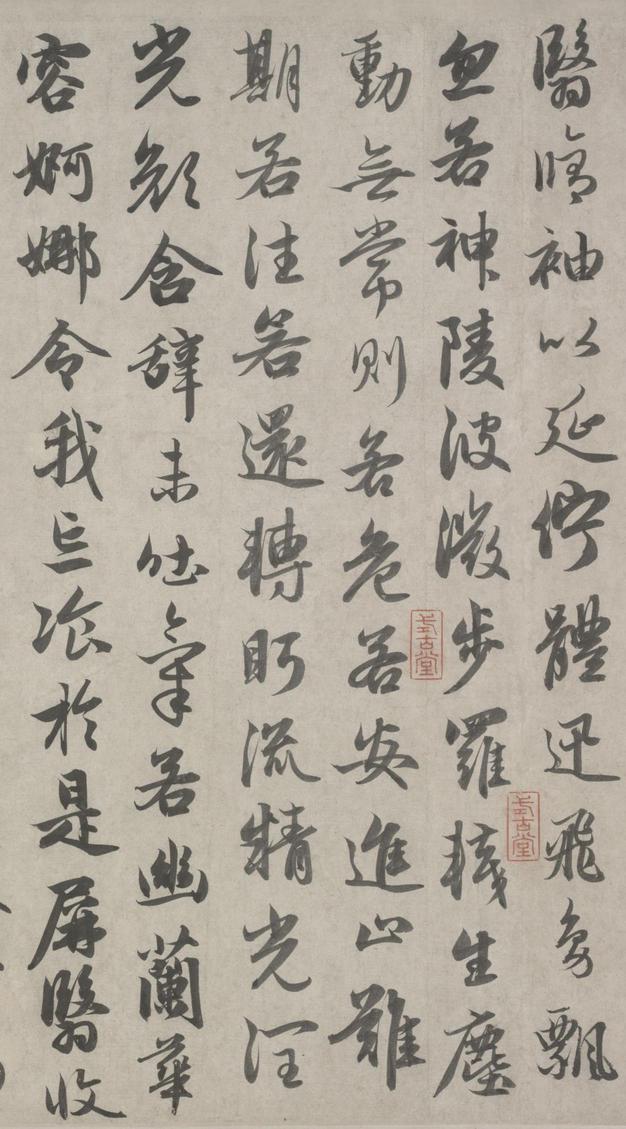 翳脩袖以延佇體迅飛鳧飄
忽若神陵波微步羅韈生塵
動無常則若危若安進止難
期若往若還轉眄流精光潤
光顏含辭未吐氣若幽蘭華
容婀娜令我忘飡於是屏翳收